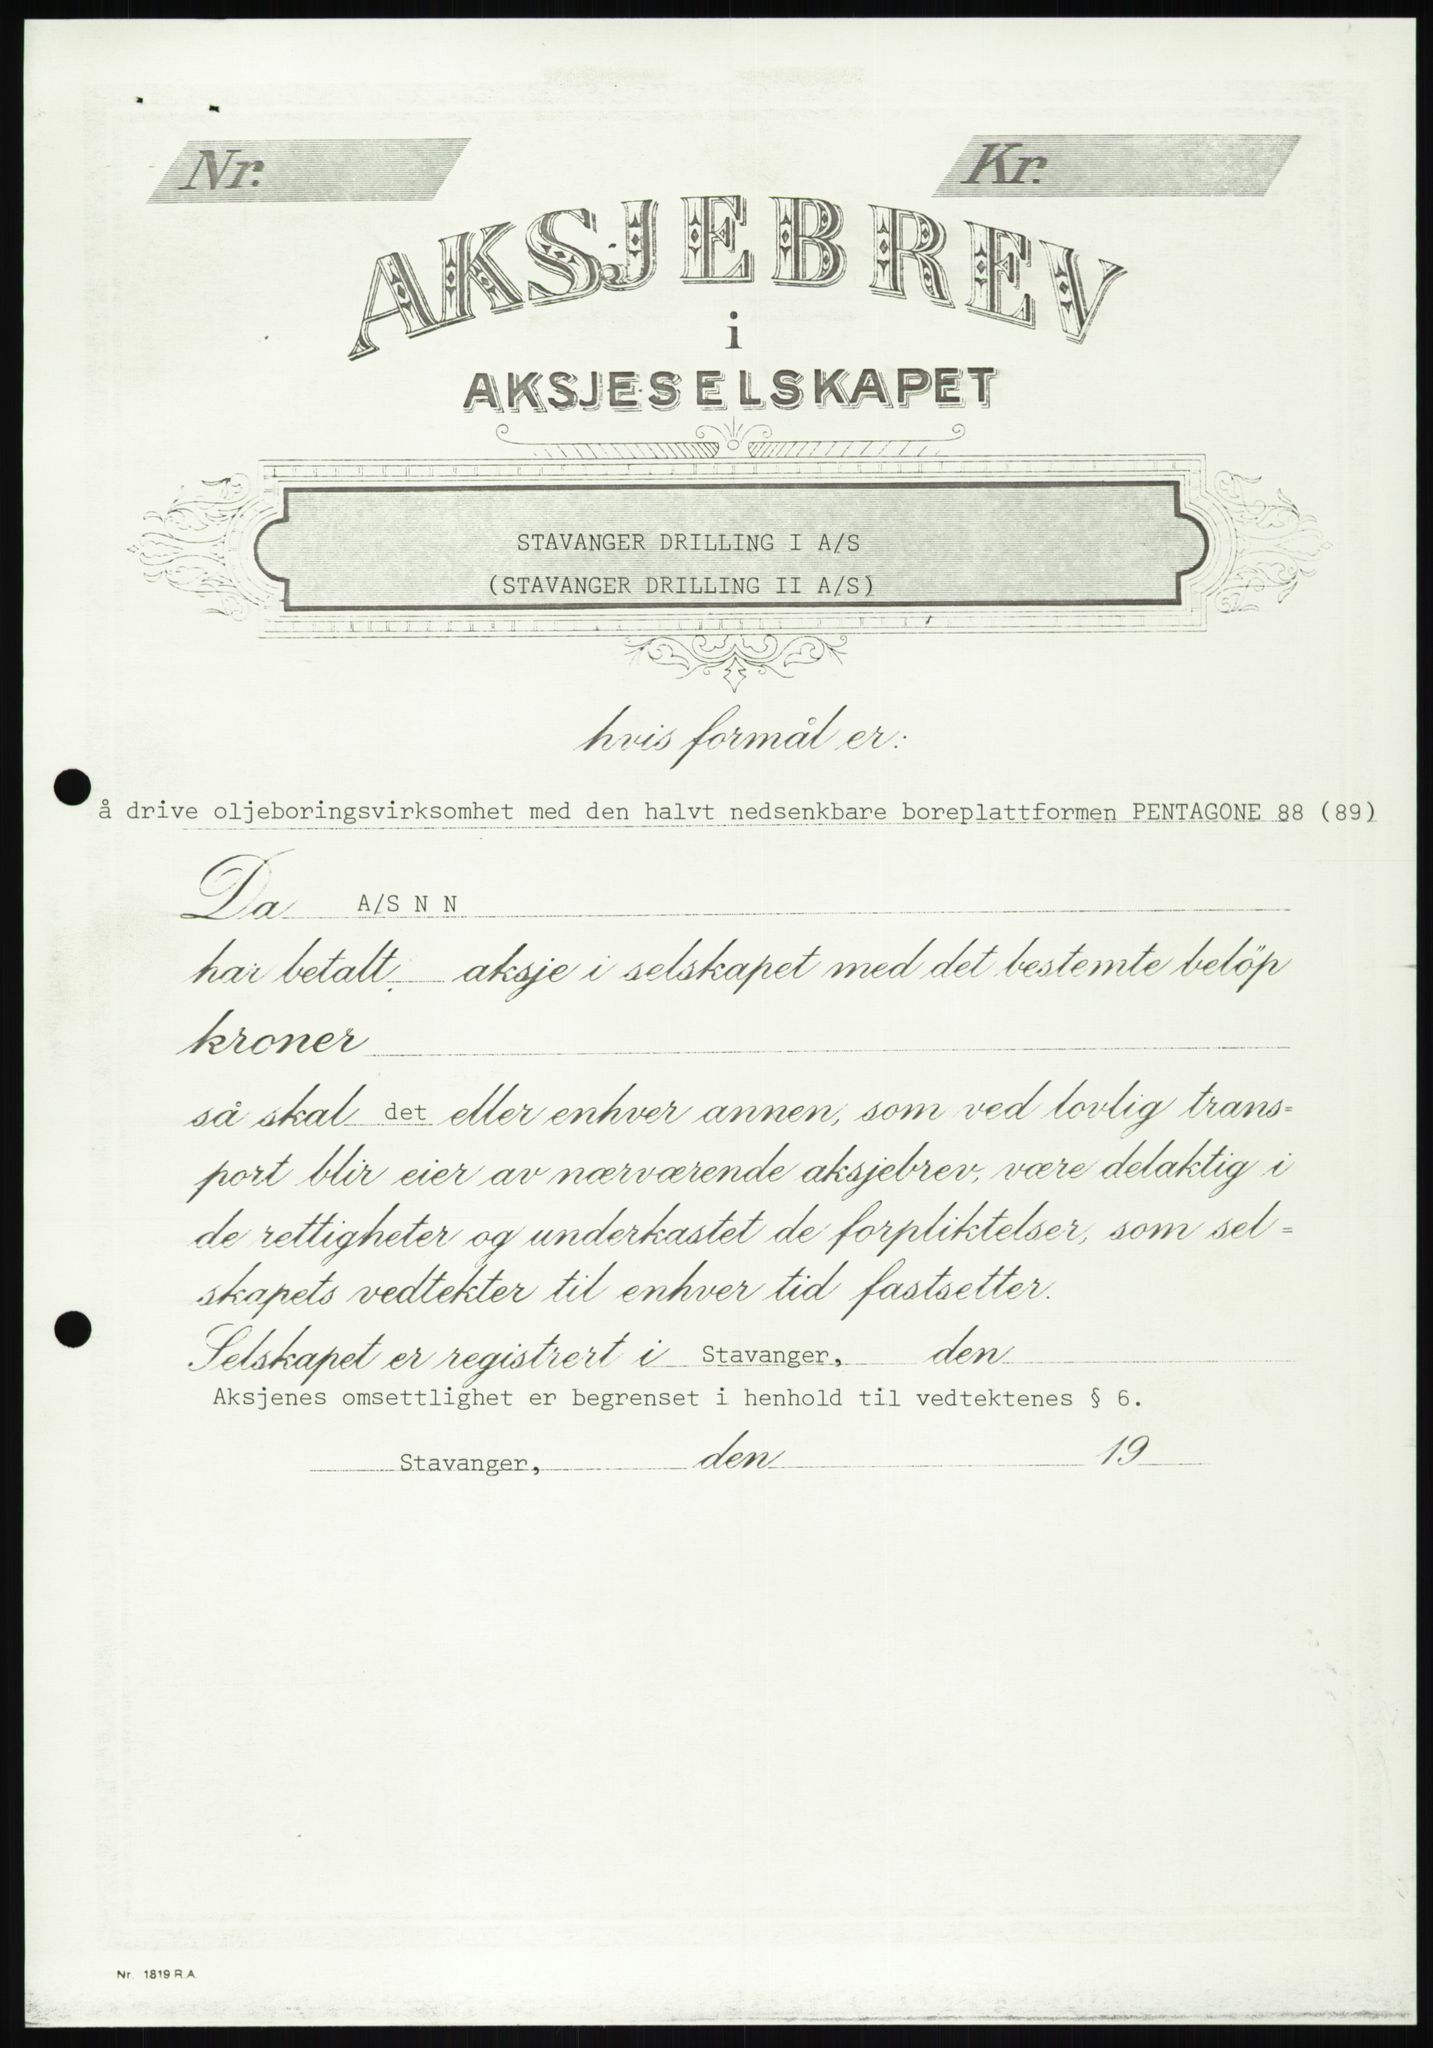 Nr.
Kr.
AKSJEBREV
i
AKSJESELSKAPET
STAVANGER DRILLING I A/S
(STAVANGER DRILLING II A/S)
hvis formål er:
å drive oljeboringsvirksomhet med den halvt nedsenkbare boreplattformen PENTAGONE 88 (89)
Da A/S N N
har betalt aksje i selskapet med det bestemte beløp
kroner
så skal det eller enhver annen, som ved lovlig trans=
port blir eier av nærværende aksjebrev, være delaktig i
de rettigheter og underkastet de forpliktelser, som sel=
skapets vedtekter til enhver tid fastsetter.
Selskapet er registrert i Stavanger, den
Aksjenes omsettlighet er begrenset i henhold til vedtektenes § 6.
Stavanger, den 19
Nr. 1819 R.A.